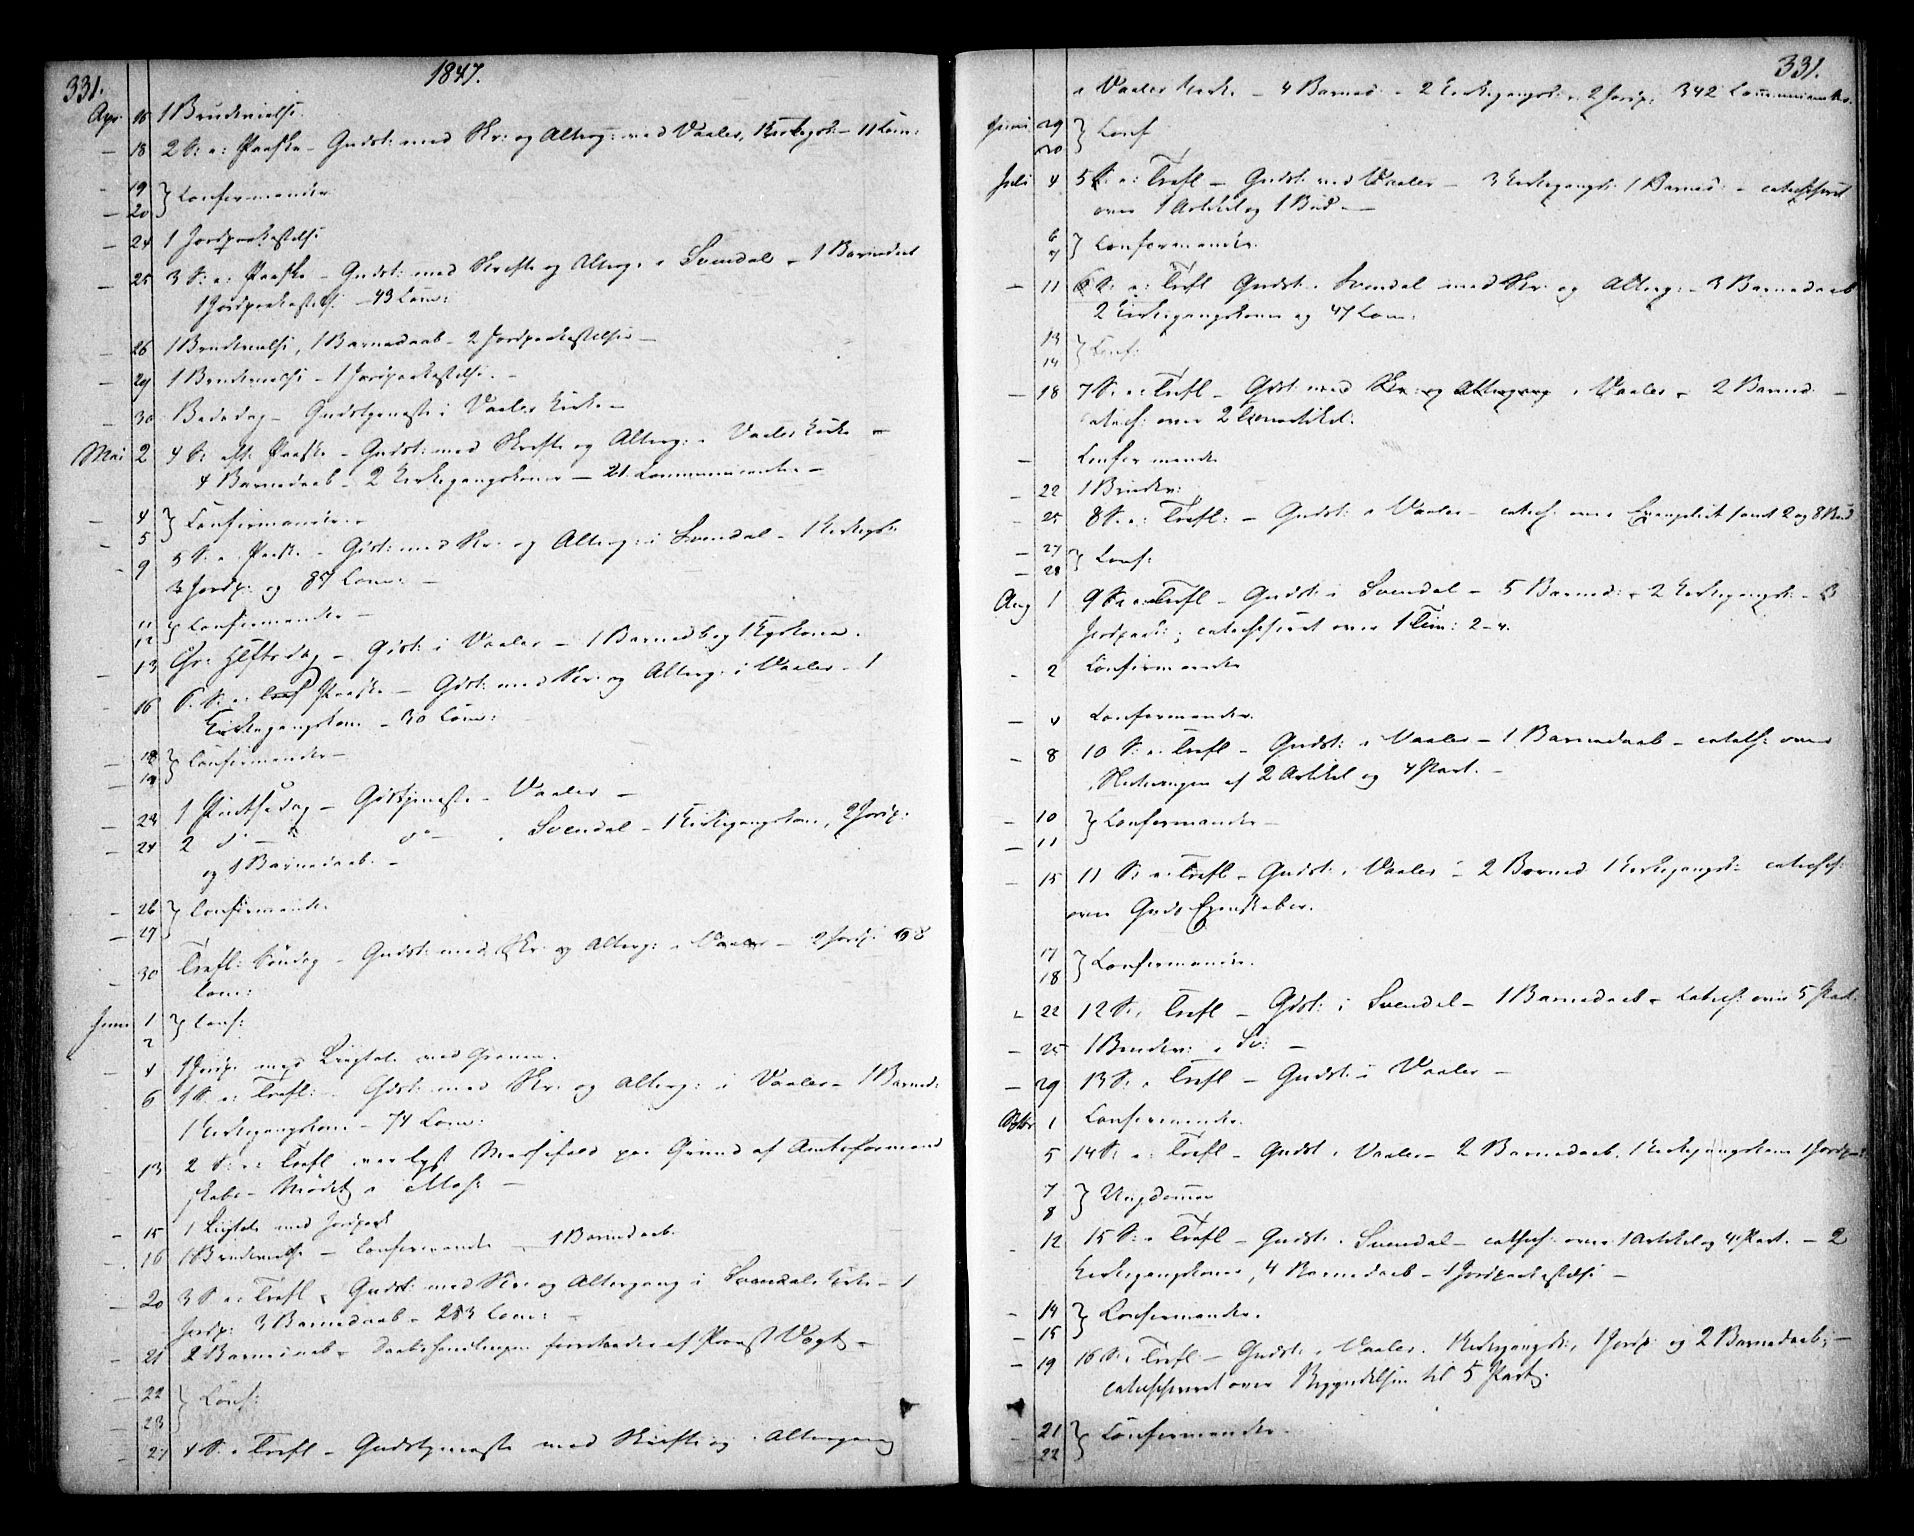 331. 1847.
Apr. 16 1 Brudevielse.
— 18 2 S: e: Paaske – Gudst: med Skr: og Alterg: ved Vaaler, 1 Kirkegk – 11 Com:
19 } Confirmander
— 20
— 24 1 Jordpaakastelse
— 25 3 S: e: Paaske – Gudst: med Skrifte og Alterg: i Svendal – 1 Barnedaab
1 Jordpaakastelse – 43 Com:
— 26 1 Brudevielse, 1 Barnedaab – 2 Jordpaakastelser –
— 29 1 Brudevielse – 1 Jordpaakastelse. –
— 30 Bededag – Gudstjeneste i Vaaler Kirke –
Mai 2 4 S: eft: Paaske – Gudst: med Skrifte og Alterg: i Vaaler Kirke –
4 Barnedaab – 2 Kirkegangskoner – 21 Communicanter –
— 4 } Confirmander
— 5
— 9 5 S: e: Paaske – Gdst: med Skr: og Alterg: i Svendal – 1 Kirkegk:
Jordp: og 87 Com: –
11 } Confirmander –
— 12
— 13 Chr: Hf:tsdag – Gdst: i Vaaler – 1 Barnedb og 1 Kgskone.
— 16 6. S: e: Paaske – Gdst: med Skr: og Alterg: i Vaaler – 1
Kirkegangskone – 30 Com:
— 18 } Confirmander –
— 19
— 23 1 Pintsedag – Gdstjeneste – Vaaler –
— 24 2 d° – d° – i Svendal – 1 Kirkegangskone, 2 Jordp:
og 1 Barnedaab. –
— 26 } Confirmander
— 27
— 30 Trefl: Søndag – Gudst: med Skr: og Alterg: i Vaaler – 2 Jordp: 98
Com:
Juni 1 } Conf:
2
— 4 1 Jordp: med Liigtale ved Graven.
— 6 1 S: e: Trefl: – Gdst: med Skr: og Alterg: i Vaaler – 1 Barned:
1 Kirkegangskone – 74 Com:
— 13 2 S: e: Trefl var lyst Messefald paa Grund af Amtsformand
skabs – Mødet i Moss –
— 15 1 Liigtale med Jordpaak
— 16 1 Brudevielse – Confirmander – 1 Barnedaab.
— 20 3 S: e: Trefl – Gudst: med Skr: og Altergang i Svendals Kirke – 1
Jordp: 3 Barnedaab – 253 Com:
— 21 2 Barnedaab – Daabshandlingen forrettedes af Provst Vogt –
— 22 } Conf:
— 23
— 27 4 S. e Trefl – Gudstjeneste med Skrifte og Altergang
331.
i Vaaler Kirke – 4 Barned – 2 Kirkegangsk: 2 Jordp: 342 Communicanter.
Juni 29 } Conf
30
Juli 4 5 S: e: Trefl – Gudst: ved Vaaler – 3 Kirkegangsk: 1 Barned: – catechiseret
over 1 Artikel og 1 Bud –
6 } Confirmander.
7
— 11 6 S: e: Trefl Gudst: i Svendal med Skr: og Alterg: – 3 Barnedaab
2 Kirkegangskoner og 47 Com:
13 } Conf:
14
— 18 7 S. e: Trefl – Gdst: med Skr: og Altergang i Vaaler – 2 Barned: –
catech: over 2 Troesartikel.
— Confirmander
— 22 1 Brudev:
— 25 8 S. e: Trefl: – Gudst: i Vaaler – catech: over Evangeliet samt 2 og 8 Bud
— 27 } Conf:
— 28
Aug 1 9 S: e: Trefl – Gudst: i Svendal – 5 Barned: – 2 Kirkegangsk: – 3
Jordpaak:; catechiseret over 1 Tim: 2–4.
— 2 Confirmander
— 4 Confirmander.
— 8 10 S: e: Trefl – Gudst: i Vaaler – 1 Barnedaab – catech: over
af 2 Artikel og 4 Part. –
— 10 } Confirmander –
— 11
— 15 11 S: e: Trefl – Gudst: i Vaaler – 2 Barned 1 Kirkegangsk: catech:
over Guds Egenskaber.
17 } Confirmander.
18
— 22 12 S. e Trefl – Gdst: i Svendal – 1 Barnedaab – Catech: over 5 Part.
— 25 1 Brudev: i Sv: –
— 29 13 S: e Trefl – Gudst: i Vaaler –
Sptbr 1 Confirmander.
5 14 S: e: Trefl – Gudst: i Vaaler – 2 Barnedaab. 1 Kirkegangskone 1 Jordp:
7 } Ungdommen
8
— 12 15 S: e Trefl – Gudst: i Svendal – catech: over 1 Artikel og 4 Part. – 2
Kirkegangskoner, 4 Barnedaab – 1 Jordpaakastelse –
— 14 } Confirmander.
— 15
— 19 16 S: e Trefl – Gudst: i Vaaler. Kirkegangsk:, 1 Jordp: og 2 Barnedaab; –
catechiseret over Begyndelsen til 5 Part.
— 21 } Confirmander.
— 22